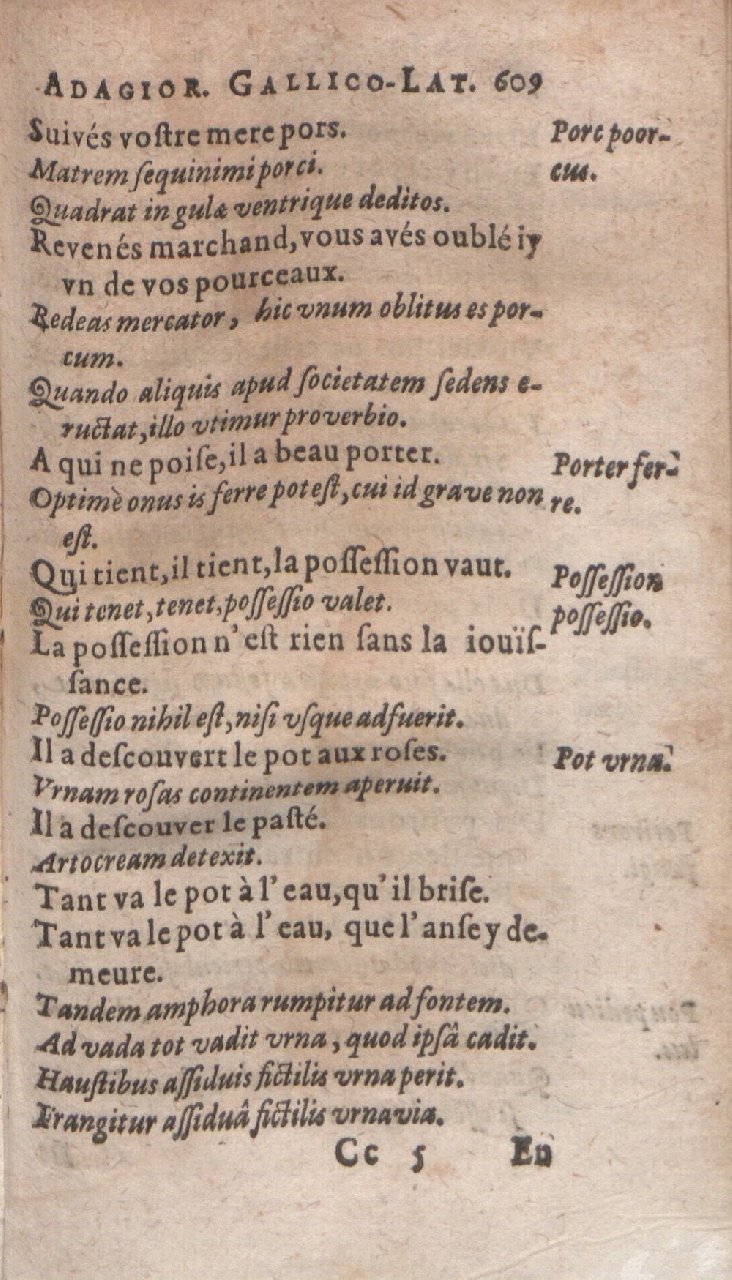 ADAGIOR. GALLICO-LAT. 609
Suivés voſtre mere pors.
Porc poor-
Matrem ſequinimi porci.
cus.
Quadrat in gulæ ventrique deditos.
Revenés marchand, vous avés oublé iy
vn de vos pourceaux.
Redeas mercator, hic vnum oblitus es por-
cum.
Quando aliquis apud ſocietatem ſedens e-
ructat, illo vtimur proverbio.
A qui ne poiſe, il a beau porter.
Porter fer-
Optimè onus is ferre poteſt, cui id grave non
re.
eſt.
Qui tient, il tient, la poſſeſſion vaut.
Poſſeſſion
Qui tenet, tenet, poſſeſſio valet.
poſſeſſio.
La poſſeſſion n'eſt rien ſans la iouïſ-
ſance.
Poſſeſſio nihil eſt, niſi vſque adfuerit.
Il a deſcouvert le pot aux roſes.
Pot vrna.
Vrnam roſas continentem aperuit.
Il a deſcouver le paſté.
Artocream detexit.
Tant va le pot à l'eau, qu'il briſe.
Tant va le pot à l'eau, que l'anſe y de-
meure.
Tandem amphora rumpitur ad fontem.
Ad vada tot vadit vrna, quod ipsâ cadit.
Hauſtibus aſſiduis fictilis vrna perit.
Frangitur aſſiduâ fictilis vrna via.
Cc 5 En